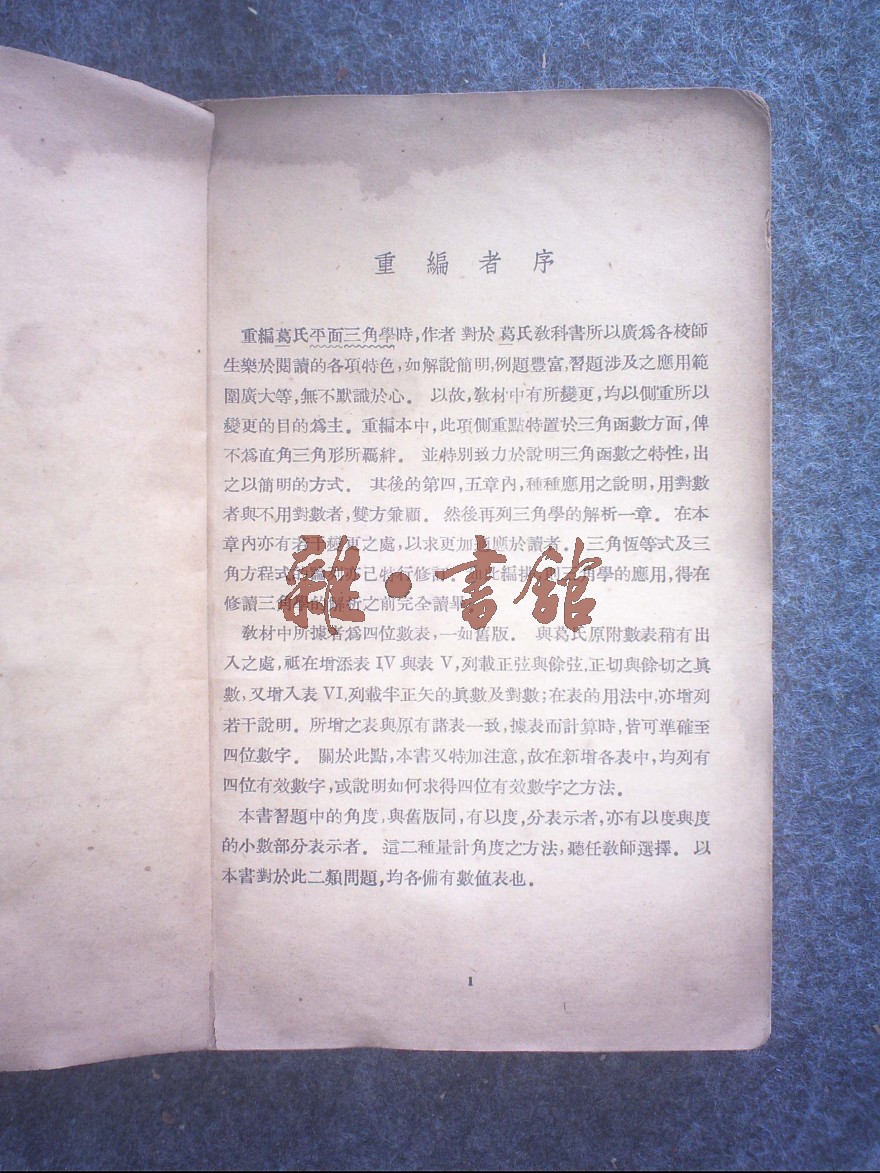 重編者序
重編葛氏平面三角學時,作者 對於 葛氏敎科書所以廣爲各校師
生樂於閱讀的各項特色,如解說簡明,例題豐富,習題涉及之應用範
圍廣大等,無不默識於心。 以故,敎材中有所變更,均以側重所以
變更的目的爲主。 重編本中,此項側重點特置於三角函數方面,俾
不爲直角三角形所羈絆。 並特別致力於說明三角函數之特性,出
之以簡明的方式。 其後的第四,五章內,種種應用之說明,用對數
者與不用對數者,雙方兼顧。 然後再列三角學的解析一章。 在本
章內亦有若干變更之處,以求更加適應於讀者。 三角恆等式及三
角方程式的 亦已特行修訂 三角學的應用,得在
修讀三角學的解析之前完全讀畢
敎材中所據者爲四位數表,一如舊版。 與葛氏原附數表稍有出
入之處,祗在增添表 IV 與表 V,列載正弦與餘弦,正切與餘切之眞
數,又增入表 VI,列載半正矢的眞數及對數;在表的用法中,亦增列
若干說明。 所增之表與原有諸表一致,據表而計算時,皆可準確至
四位數字。 關於此點,本書又特加注意,故在新增各表中,均列有
四位有效數字,或說明如何求得四位有效數字之方法。
本書習題中的角度,與舊版同,有以度,分表示者,亦有以度與度
的小數部分表示者。 這二種量計角度之方法,聽任敎師選擇。 以
本書對於此二類問題,均各備有數值表也。
1
雜·書館